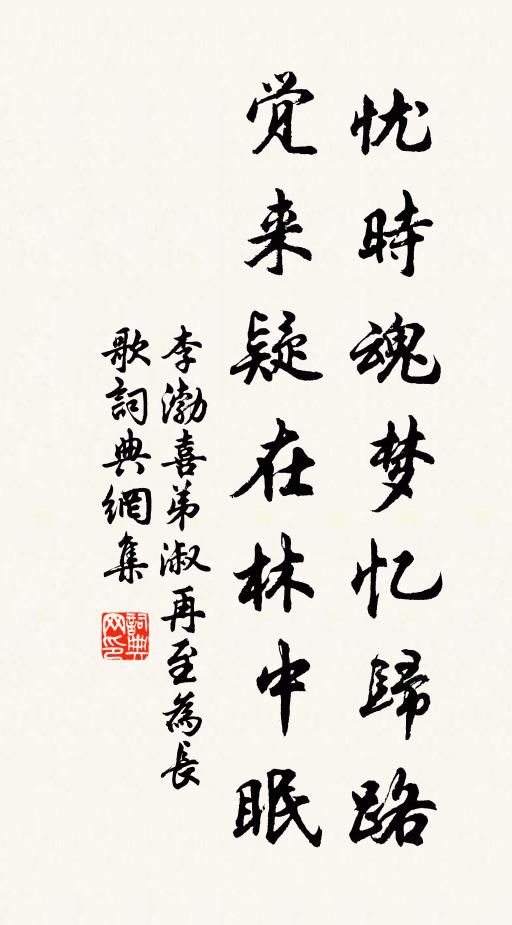 忧時魂梦忆歸路
觉来疑在林中眠
李渤喜弟淑再至為長
歌詞典網集
詞典网印